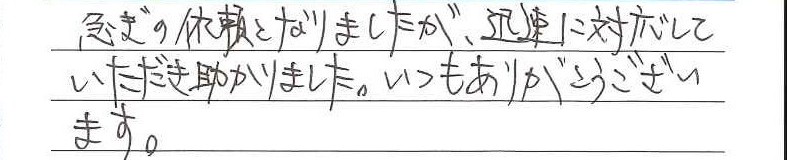 急ぎの依頼となりましたが、迅速に対応して
いただき助かりました。いつもありがとうござい
ます。